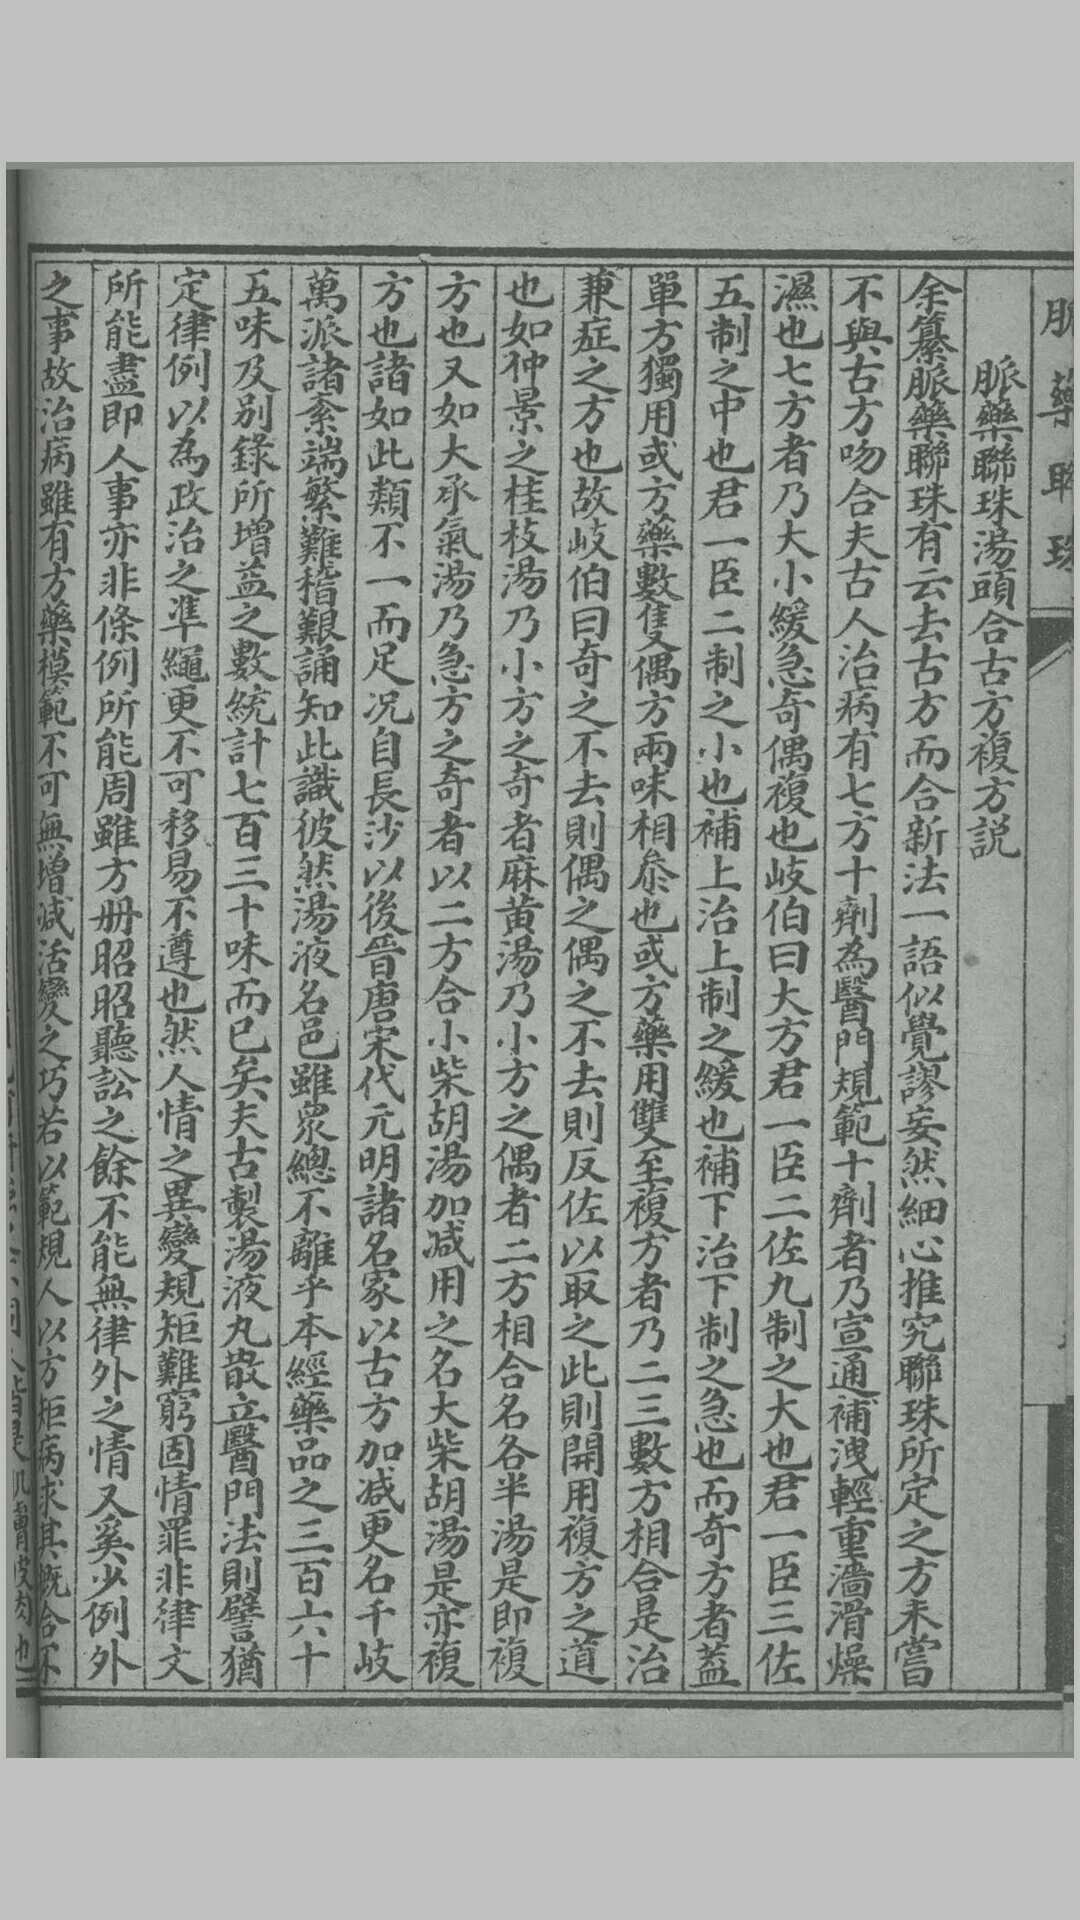 脈藥聯珠
脈藥聯珠湯頭合古方複方説
余纂脈藥聯珠有云去古方而合新法一語似覺謬妄然細心推究聯珠所定之方未嘗
不與古方吻合夫古人治病有七方十劑為醫門規範十劑者乃宣通補洩輕重濇滑燥
濕也七方者乃大小緩急奇偶複也岐伯曰大方君一臣二佐九制之大也君一臣三佐
五制之中也君一臣二制之小也補上治上制之緩也補下治下制之急也而奇方者蓋
單方獨用或方藥數隻偶方兩味相叅也或方藥用雙至複方者乃二三數方相合是治
兼症之方也故岐伯曰奇之不去則偶之偶之不去則反佐以取之此則開用複方之道
也如仲景之桂枝湯乃小方之奇者麻黃湯乃小方之偶者二方相合名各半湯是即複
方也又如大承氣湯乃急方之奇者以二方合小柴胡湯加減用之名大柴胡湯是亦複
方也諸如此類不一而足况自長沙以後晉唐宋代元明諸名家以古方加減更名千岐
萬派諸紊端繁難稽艱誦知此識彼然湯液名邑雖衆總不離乎本經藥品之三百六十
五味及别錄所增益之數統計七百三十味而已矣夫古製湯液丸散立醫門法則譬猶
定律例以為政治之凖繩更不可移易不遵也然人情之異變規矩難窮固情罪非律文
所能盡即人事亦非條例所能周雖方册昭昭聽訟之餘不能無律外之情又奚少例外
之事故治病雖有方藥模範不可無增減活變之巧若以範規人以方矩病求其概合不